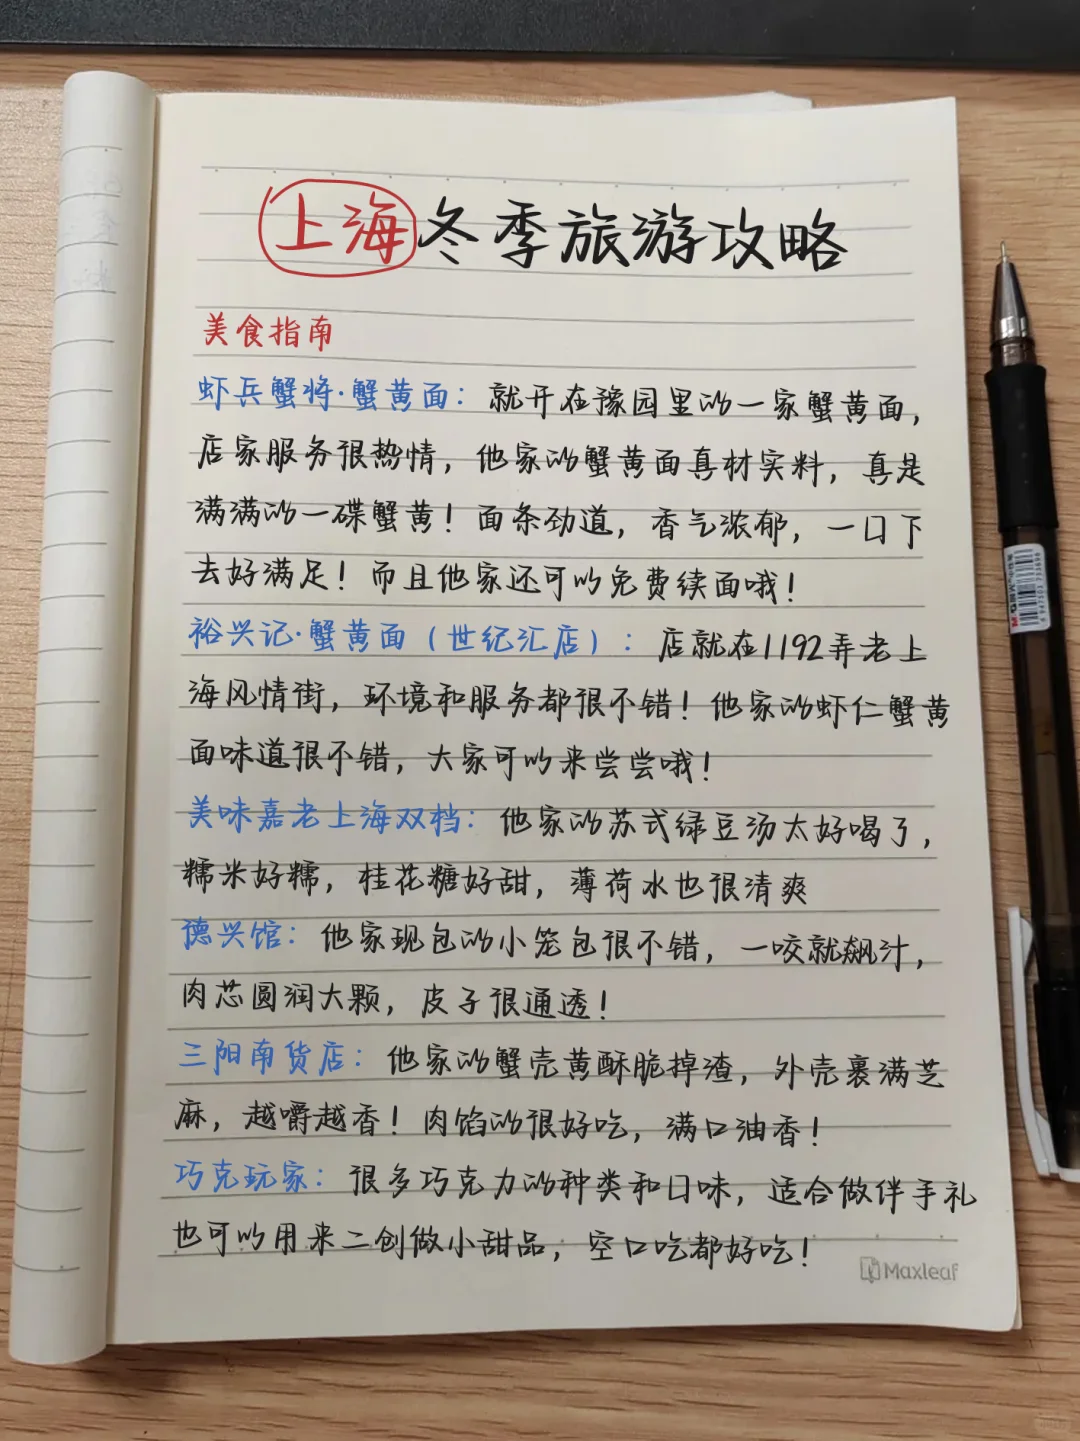 上海冬季旅游攻略
美食指南
虾兵蟹将·蟹黄面：就开在豫园里的一家蟹黄面，
店家服务很热情，他家的蟹黄面真材实料，真是
满满的一碟蟹黄！面条劲道，香气浓郁，一口下
去好满足！而且他家还可以免费续面哦！
裕兴记·蟹黄面（世纪汇店）：店就在1192弄老上
海风情街，环境和服务都很不错！他家的虾仁蟹黄
面味道很不错，大家可以来尝尝哦！
美味嘉老上海双档：他家的苏式绿豆汤太好喝了，
糯米好糯，桂花糖好甜，薄荷水也很清爽
德兴馆：他家现包的小笼包很不错，一咬就飙汁，
肉芯圆润大颗，皮子很通透！
三阳南货店：他家的蟹壳黄酥脆掉渣，外壳裹满芝
麻，越嚼越香！肉馅的很好吃，满口油香！
巧克玩家：很多巧克力的种类和口味，适合做伴手礼
也可以用来二创做小甜品，空口吃都好吃！
Maxleaf